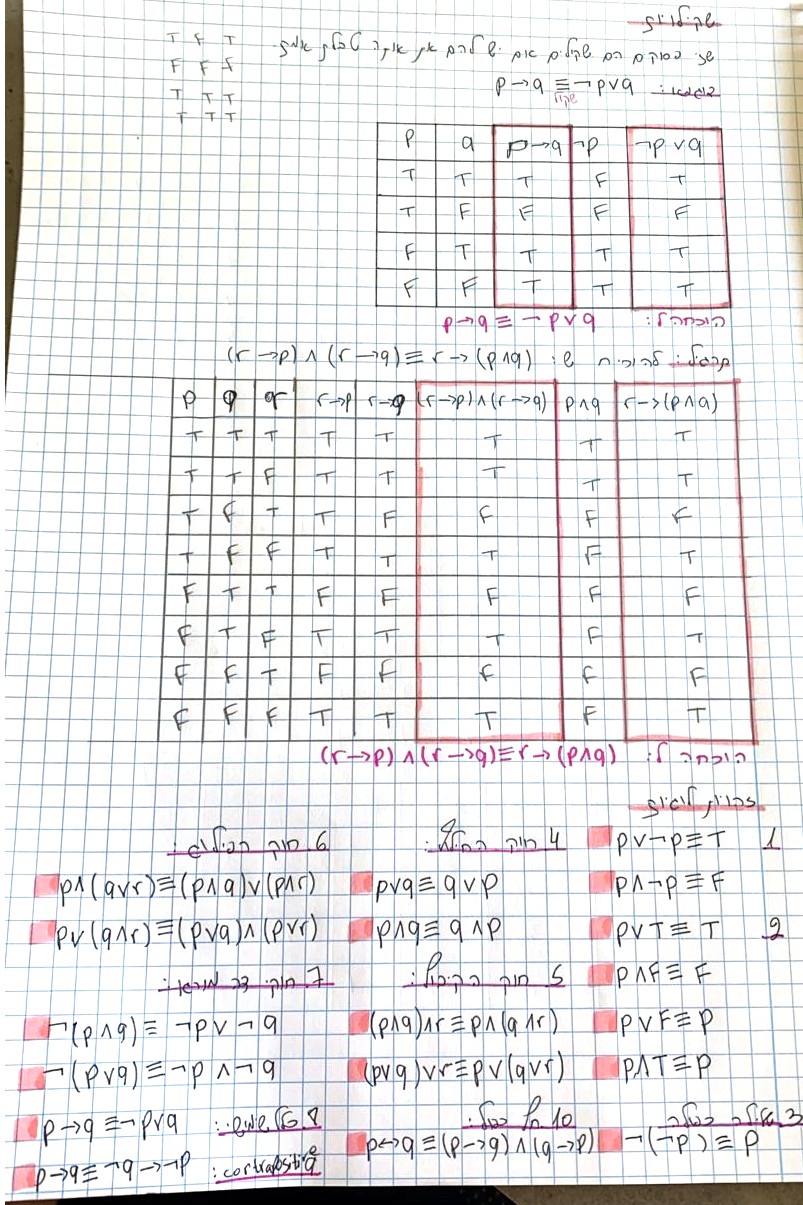 שקילויות
T F T
F F F
T T T
T T T
שני פסוקים הם שקולים אם יש להם את אותה טבלת אמת.
דוגמא: p→q ≡ ¬p∨q
שקול
p q p→q ¬p ¬p∨q
T T T F T
T F F F F
F T T T T
F F T T T
הוכחה ל: p→q ≡ ¬p∨q
תרגיל: להוכיח ש: (r→p)∧(r→q)≡r→(p∧q)
p q r r→p r→q (r→p)∧(r→q) p∧q r→(p∧q)
T T T T T T T T
T T F T T T T T
T F T T F F F F
T F F T T T F T
F T T F F F F F
F T F T T T F T
F F T F F F F F
F F F T T T F T
הוכחה ל: (r→p)∧(r→q)≡r→(p∧q)
זהויות לוגיות
1 p∨¬p≡T
p∧¬p≡F
2 p∨T≡T
p∧F≡F
p∨F≡p
p∧T≡p
3 שלילה כפולה
¬(¬p)≡p
4 חוק החילוף:
p∨q≡q∨p
p∧q≡q∧p
5 חוק הקיבוץ:
(p∧q)∧r≡p∧(q∧r)
(p∨q)∨r≡p∨(q∨r)
10 חץ כפול:
p↔q≡(p→q)∧(q→p)
6 חוק הפילוג:
p∧(q∨r)≡(p∧q)∨(p∧r)
p∨(q∧r)≡(p∨q)∧(p∨r)
7 חוקי דה מורגן:
¬(p∧q)≡¬p∨¬q
¬(p∨q)≡¬p∧¬q
8
p→q≡¬p∨q
9 contrapositi
p→q≡¬q→¬p